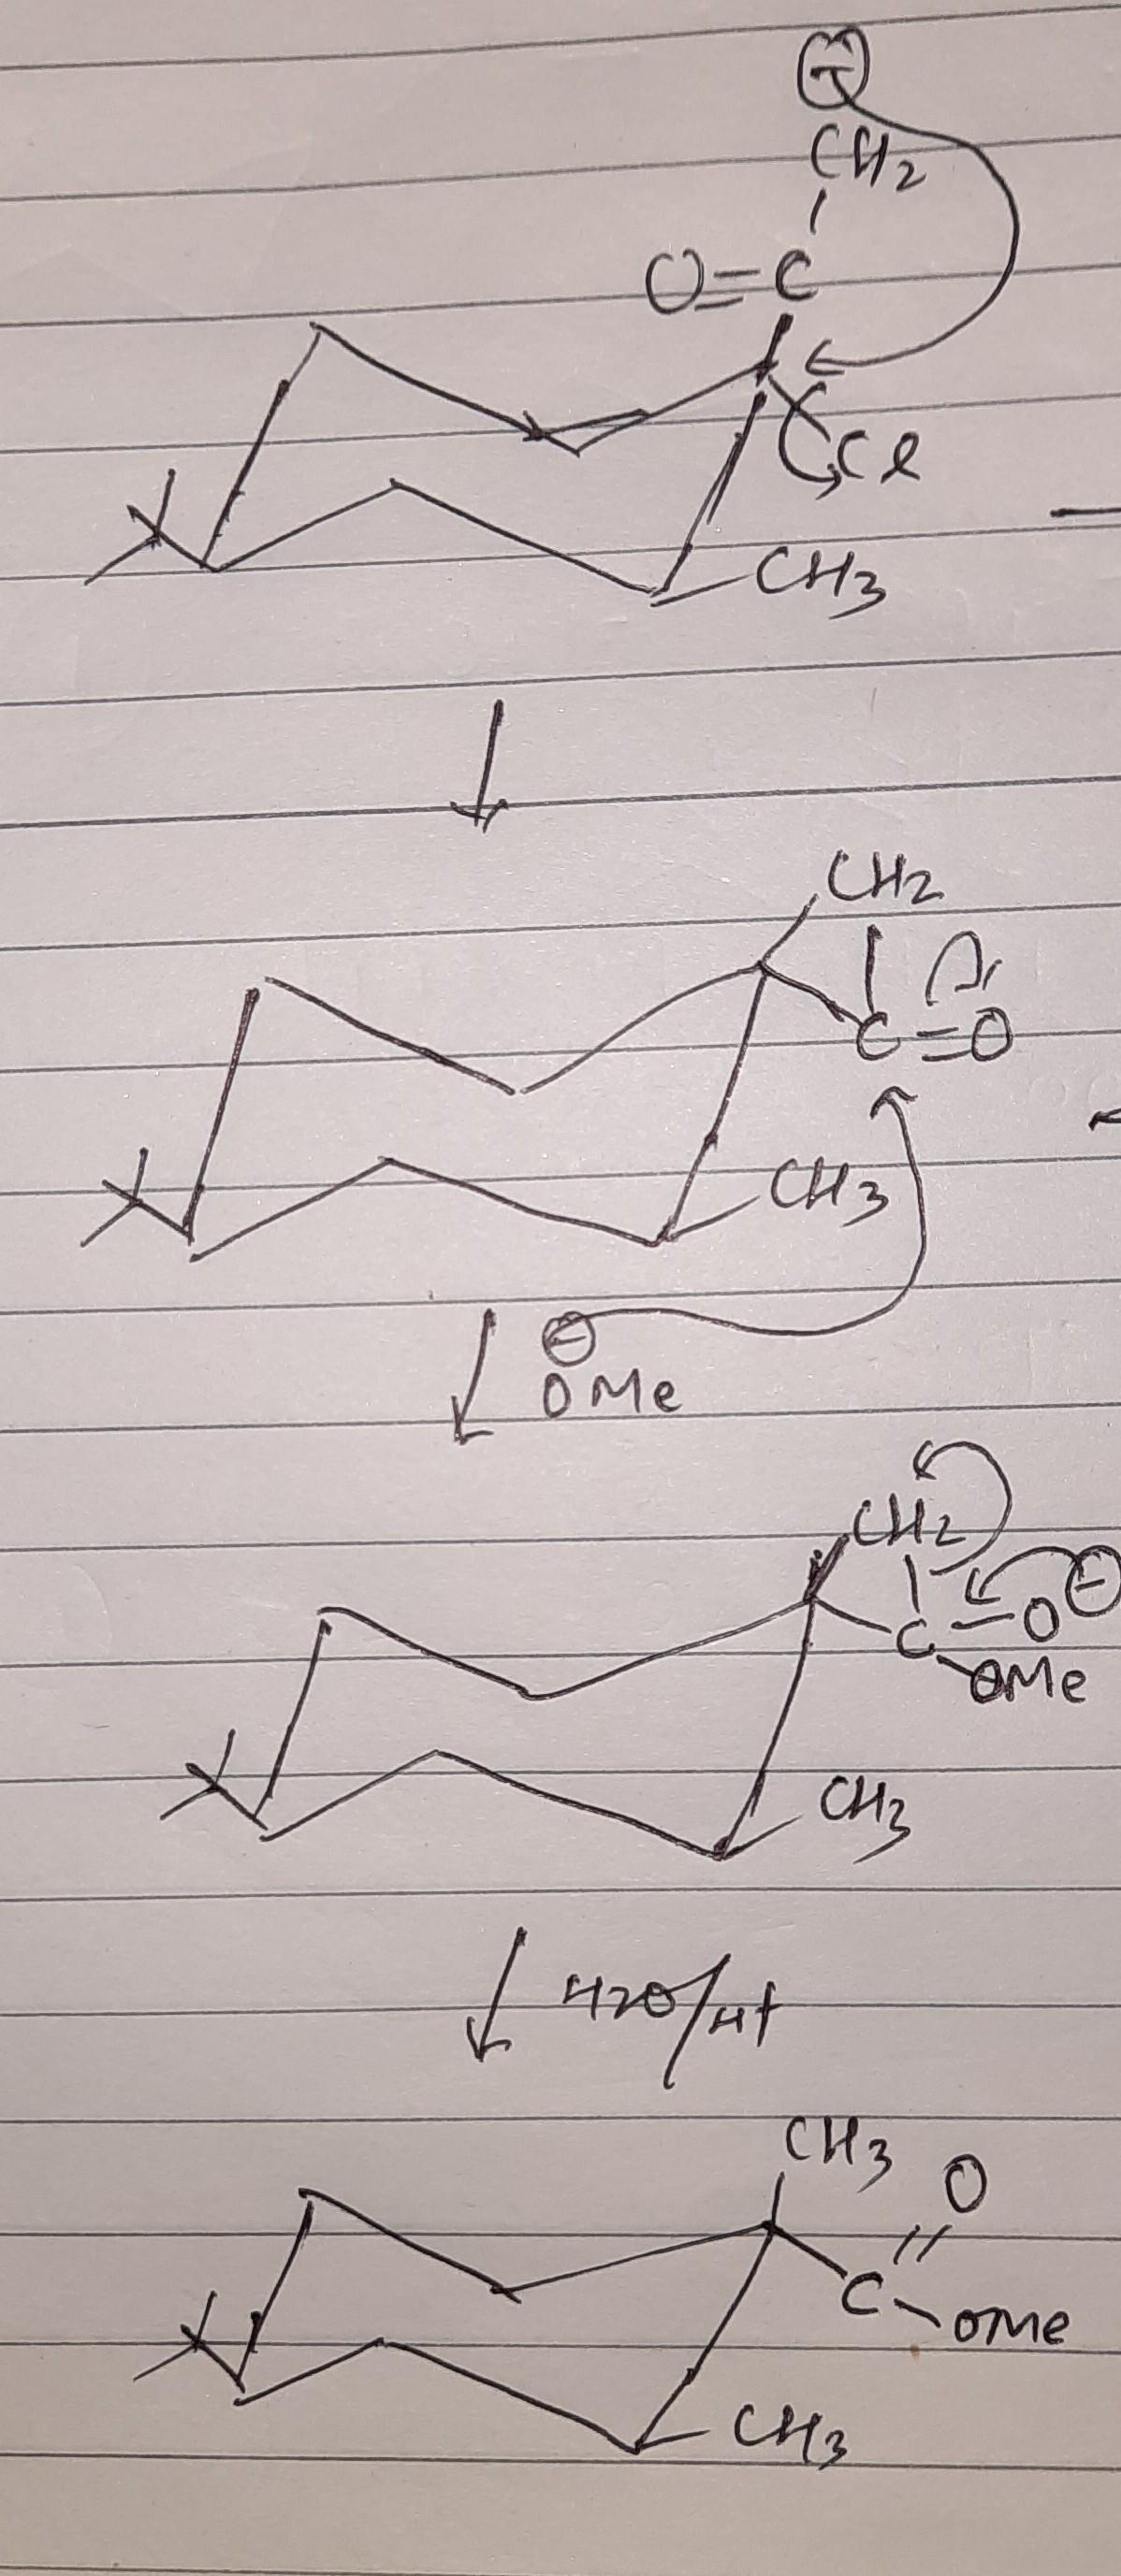 ⊖
CH2
O=C
Cl
CH3
CH2
C=O
CH3
⊖
OMe
CH2
C-O⊖
OMe
CH3
H2O/H+
CH3
O
C
OMe
CH3